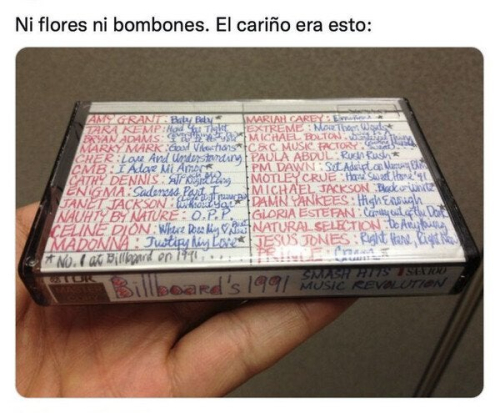 Ni flores ni bombones. El cariño era esto:
AMY GRANT: Baby Baby*
TARA KEMP: Hold You Tight
BRYAN ADAMS:
MARKY MARK: Good Vibrations*
CHER: Love And Understanding
CMB: I Adore Mi Amor*
CATHY DENNIS: All Night Long
ENIGMA: Sadeness Part I
JANET JACKSON:
NAUHTY BY NATURE: O.P.P.
CELINE DION: Where Does My
MADONNA: Justify My Love*
* No. 1 at Billboard on 1991
MARIAH CAREY: Emotions*
EXTREME: More Than Words*
MICHAEL BOLTON:
C&C MUSIC FACTORY:
PAULA ABDUL: Rush Rush*
PM DAWN: Set Adrift on Memory Bliss
MOTLEY CRUE: Home Sweet Home '91
MICHAEL JACKSON: Black or White*
DAMN YANKEES: High Enough
GLORIA ESTEFAN: Coming out of the Dark*
NATURAL SELECTION: Do Anything
JESUS JONES: Right Here, Right Now
PRINCE: Cream*
Billboard's 1991
SMASH HITS
MUSIC REVOLUTION